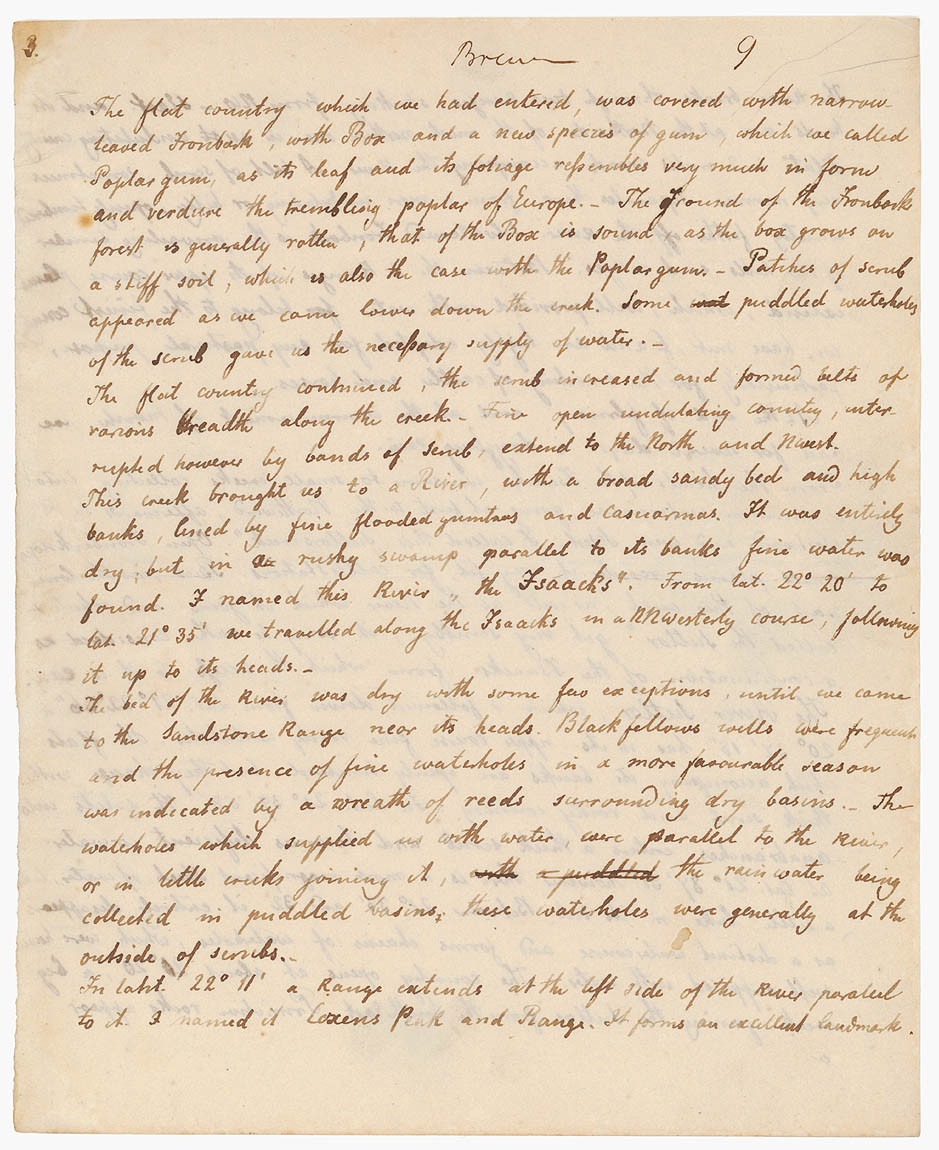 3.
Brown 9
The flat country which we had entered, was covered with narrow
leaved Ironbark, with Box and a new species of gum, which we called
Poplar gum, as its leaf and its foliage ressembles very much in form
and verdure the trembling poplar of Europe. _ The ground of the Ironbark
forest is generally rotten, that of the Box is sound, as the box grows on
a stiff soil, which is also the case with the Poplar gum. _ Patches of scrub
appeared as we came lower down the creek. Some puddled waterholes
of the scrub gave us the necessary supply of water. _
The flat country continued, the scrub increased and formed belts of
various breadth along the creek _ Fine open undulating country, inter-
rupted however by bands of scrub, extend to the North and NWest.
This creek brought us to a River, with a broad sandy bed and high
banks, lined by fine flooded gumtrees and Casuarinas. It was entirely
dry, but in a rushy swamp parallel to its banks fine water was
found. I named this River „ the Isaacks". From lat. 22° 20' to
lat. 21° 35' we travelled along the Isaacks in a NNWesterly course, following
it up to its heads. _
The bed of the River was dry with some few exceptions, until we came
to the Sandstone Range near its heads. Blackfellows wells were frequent
and the presence of fine waterholes in a more favourable season
was indicated by a wreath of reeds surrounding dry basins. _ The
waterholes which supplied us with water, were parallel to the River,
or in little creeks joining it, with a puddled the rainwater being
collected in puddled basins; these waterholes were generally at the
outside of scrubs. _
In latit. 22° 11' a Range extends at the left side of the River parallel
to it. I named it Coxens Peak and Range. It forms an excellent landmark.